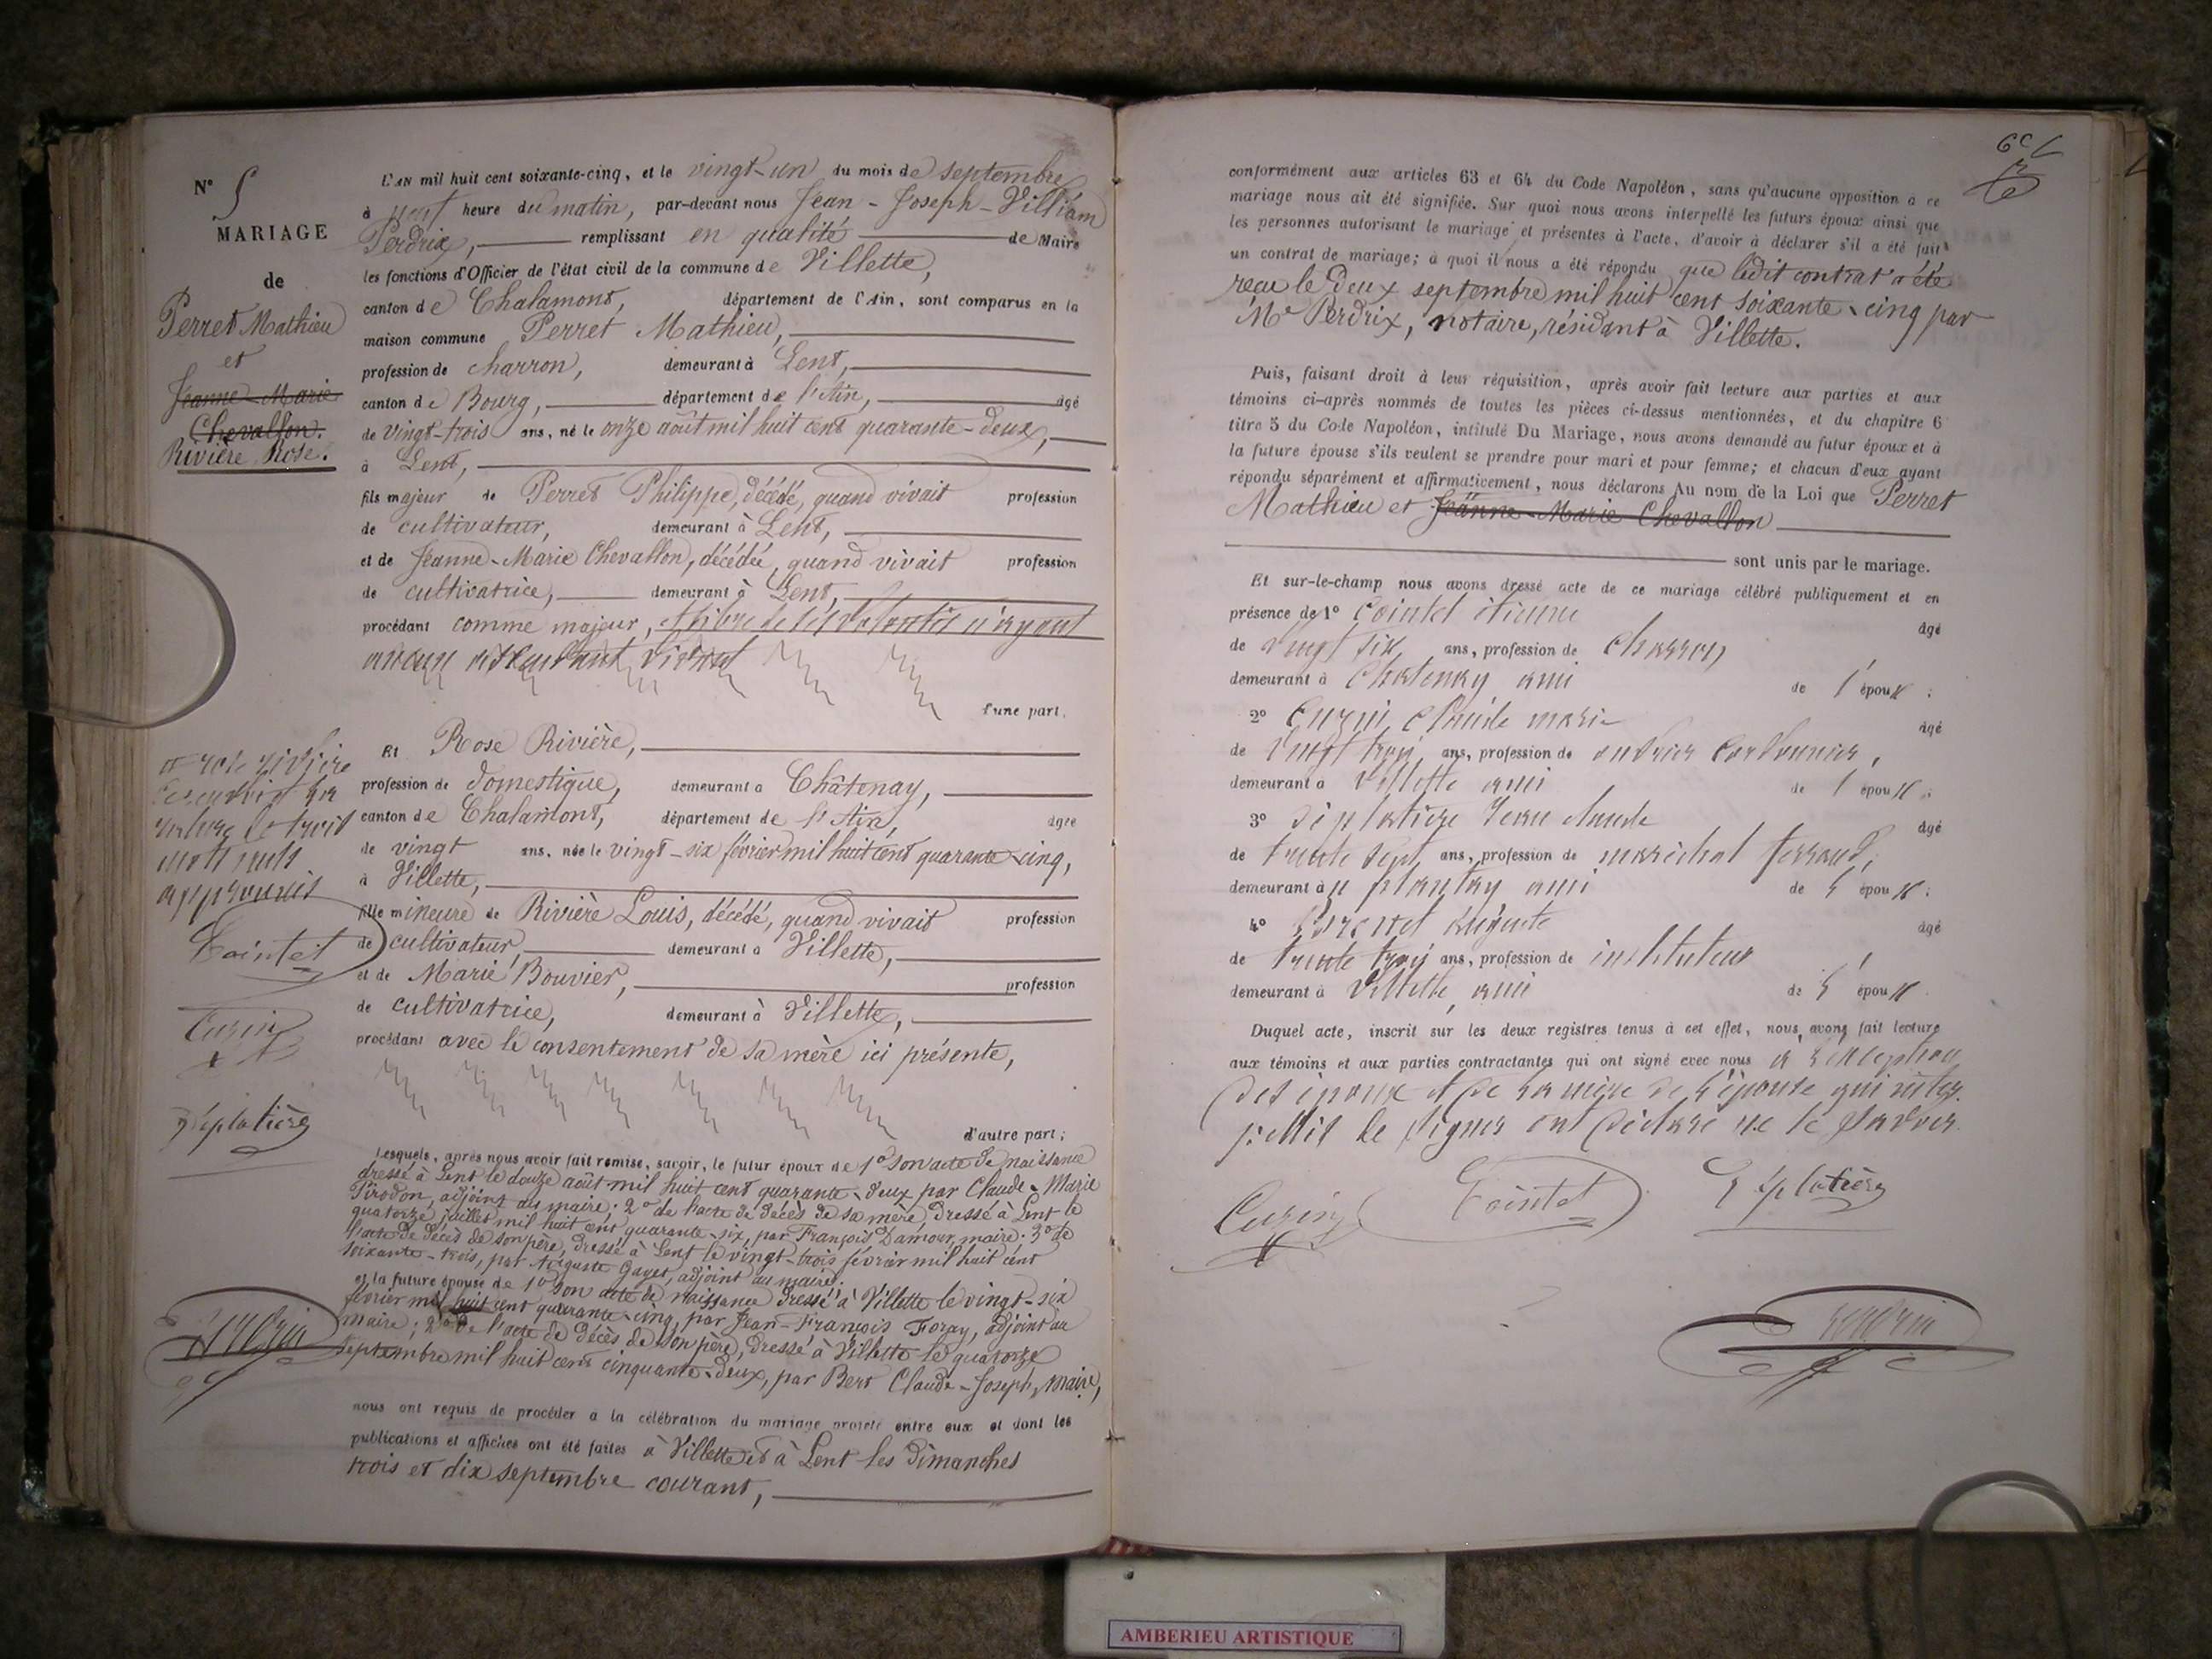 N° 5
MARIAGE
de
Perret Mathieu
et
Jeanne-Marie
Chevallon.
Rivière Rose.
L'AN mil huit cent soixante-cinq, et le vingt-un du mois de septembre
à neuf heure du matin, par-devant nous Jean-Joseph-Villiam
Perdrix, remplissant en qualité de Maire
les fonctions d'Officier de l'état civil de la commune de Villette,
canton de Chalamont, département de l'Ain, sont comparus en la
maison commune Perret Mathieu,
profession de charron, demeurant à Lent,
canton de Bourg, département de l'Ain, âgé
de vingt-trois ans, né le onze août mil huit cent quarante-deux,
à Lent,
fils majeur de Perret Philippe, décédé, quand vivait profession
de cultivateur, demeurant à Lent,
et de Jeanne-Marie Chevallon, décédée, quand vivait profession
de cultivatrice, demeurant à Lent,
procédant comme majeur, et libre de ses volontés n'ayant
aucun ascendant vivant
d'une part.
Et Rose Rivière,
profession de domestique, demeurant à Châtenay,
canton de Chalamont, département de l'Ain, âgée
de vingt ans, née le vingt-six février mil huit cent quarante-cinq,
à Villette,
fille mineure de Rivière Louis, décédé, quand vivait profession
de cultivateur, demeurant à Villette,
et de Marie Bouvier, profession
de cultivatrice, demeurant à Villette,
procédant avec le consentement de sa mère ici présente,
d'autre part;
Lesquels, après nous avoir fait remise, savoir, le futur époux de 1° son acte de naissance
dressé à Lent le douze août mil huit cent quarante-deux par Claude-Marie
Pirodon, adjoint au maire; 2° de l'acte de décès de sa mère, dressé à Lent le
quatorze juillet mil huit cent quarante-six, par François Damour, maire; 3° de
l'acte de décès de son père, dressé à Lent le vingt-trois février mil huit cent
soixante-trois, par Auguste Gayet, adjoint au maire;
et la future épouse de 1° son acte de naissance dressé à Villette le vingt-six
février mil huit cent quarante-cinq, par Jean-François Foray, adjoint au
maire; 2° de l'acte de décès de son père, dressé à Villette le quatorze
septembre mil huit cent cinquante-deux, par Bert Claude-Joseph, maire,
nous ont requis de procéder à la célébration du mariage projeté entre eux et dont les
publications et affiches ont été faites à Villette et à Lent les dimanches
trois et dix septembre courant,
et rose rivière
mott nuls
approuvés
Cointet
Cuzin
Déplatière
Perdrix
conformément aux articles 63 et 64 du Code Napoléon, sans qu'aucune opposition à ce
mariage nous ait été signifiée. Sur quoi nous avons interpellé les futurs époux ainsi que
les personnes autorisant le mariage et présentes à l'acte, d'avoir à déclarer s'il a été fait
un contrat de mariage; à quoi il nous a été répondu que ledit contrat a été
reçu le deux septembre mil huit cent soixante-cinq par
Me Perdrix, notaire, résidant à Villette.
Puis, faisant droit à leur réquisition, après avoir fait lecture aux parties et aux
témoins ci-après nommés de toutes les pièces ci-dessus mentionnées, et du chapitre 6
titre 5 du Code Napoléon, intitulé Du Mariage, nous avons demandé au futur époux et à
la future épouse s'ils veulent se prendre pour mari et pour femme; et chacun d'eux ayant
répondu séparément et affirmativement, nous déclarons Au nom de la Loi que Perret
Mathieu et Jeanne-Marie Chevallon
sont unis par le mariage.
Et sur-le-champ nous avons dressé acte de ce mariage célébré publiquement et en
présence de 1° Cointet étienne âgé
de vingt six ans, profession de Charron
demeurant à Chatenay ami de l'époux;
2° Cuzin Claude marie âgé
de vingt trois ans, profession de ouvrier cordonnier,
demeurant à Villette ami de l'époux;
3° Déplatière Jean claude âgé
de trente sept ans, profession de maréchal ferrand,
demeurant à u plantay ami de l'époux;
4° auguste âgé
de trente trois ans, profession de instituteur
demeurant à Villette, ami de l'époux
Duquel acte, inscrit sur les deux registres tenus à cet effet, nous avons fait lecture
aux témoins et aux parties contractantes qui ont signé avec nous à l'exception
des époux et de la mère de l'épouse qui inter-
pellés de signer ont déclaré ne le savoir.
Cuzin Cointet Déplatière
Perdrix
AMBERIEU ARTISTIQUE